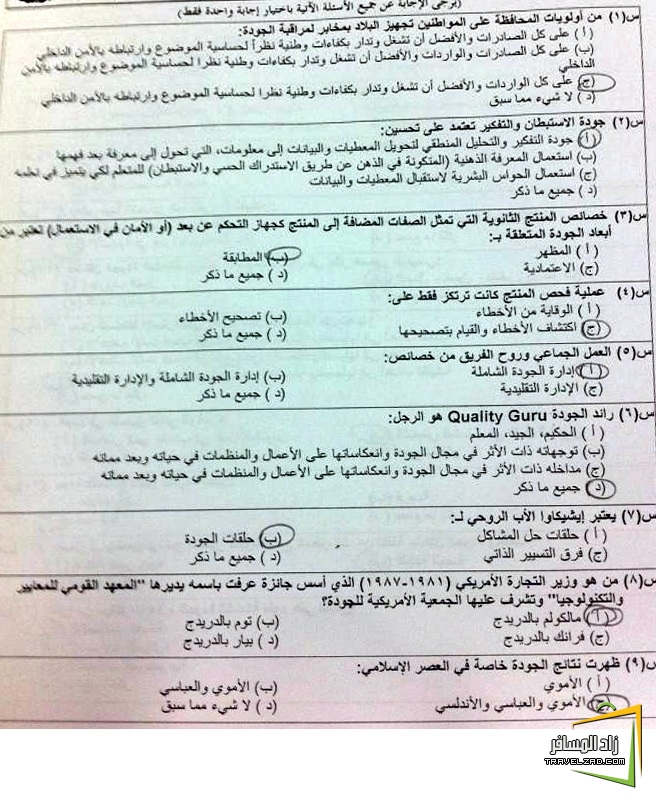 (يرجى الإجابة عن جميع الأسئلة الآتية باختيار إجابة واحدة فقط)
س(١) من أولويات المحافظة على المواطنين تجهيز البلاد بمخابر لمراقبة الجودة:
(أ) على كل الصادرات والأفضل أن تشغل وتدار بكفاءات وطنية نظراً لحساسية الموضوع وارتباطه بالأمن الداخلي
(ب) على كل الصادرات والواردات والأفضل أن تشغل وتدار بكفاءات وطنية نظرا لحساسية الموضوع وارتباطه بالأمن
الداخلي
(ج) على كل الواردات والأفضل أن تشغل وتدار بكفاءات وطنية نظرا لحساسية الموضوع وارتباطه بالأمن الداخلي
(د) لا شيء مما سبق
س(٢) جودة الاستبطان والتفكير تعتمد على تحسين:
(أ) جودة التفكير والتحليل المنطقي لتحويل المعطيات والبيانات إلى معلومات، التي تحول إلى معرفة بعد فهمها
(ب) استعمال المعرفة الذهنية (المتكونة في الذهن عن طريق الاستدراك الحسي والاستبطان) للمتعلم لكي يتميز في تعلمه
(ج) استعمال الحواس البشرية لاستقبال المعطيات والبيانات
(د) جميع ما ذكر
س(٣) خصائص المنتج الثانوية التي تمثل الصفات المضافة إلى المنتج كجهاز التحكم عن بعد (أو الأمان في الاستعمال) تعتبر من
أبعاد الجودة المتعلقة بـ:
(أ) المظهر (ب) المطابقة
(ج) الاعتمادية (د) جميع ما ذكر
س(٤) عملية فحص المنتج كانت ترتكز فقط على:
(أ) الوقاية من الأخطاء (ب) تصحيح الأخطاء
(ج) اكتشاف الأخطاء والقيام بتصحيحها (د) جميع ما ذكر
س(٥) العمل الجماعي وروح الفريق من خصائص:
(أ) إدارة الجودة الشاملة (ب) إدارة الجودة الشاملة والإدارة التقليدية
(ج) الإدارة التقليدية (د) جميع ما ذكر
س(٦) رائد الجودة Quality Guru هو الرجل:
(أ) الحكيم، الجيد، المعلم
(ب) توجهاته ذات الأثر في مجال الجودة وانعكاساتها على الأعمال والمنظمات في حياته وبعد مماته
(ج) مداخله ذات الأثر في مجال الجودة وانعكاساتها على الأعمال والمنظمات في حياته وبعد مماته
(د) جميع ما ذكر
س(٧) يعتبر إيشيكاوا الأب الروحي لـ:
(أ) حلقات حل المشاكل (ب) حلقات الجودة
(ج) فرق التسيير الذاتي (د) جميع ما ذكر
س(٨) من هو وزير التجارة الأمريكي (١٩٨١-١٩٨٧) الذي أسس جائزة عرفت باسمه يديرها "المعهد القومي للمعايير
والتكنولوجيا" وتشرف عليها الجمعية الأمريكية للجودة؟
(أ) مالكولم بالدريدج (ب) توم بالدريدج
(ج) فرانك بالدريدج (د) بيار بالدريدج
س(٩) ظهرت نتائج الجودة خاصة في العصر الإسلامي:
(أ) الأموي (ب) الأموي والعباسي
(ج) الأموي والعباسي والأندلسي (د) لا شيء مما سبق
زاد المسافر
TRAVELZAD.COM